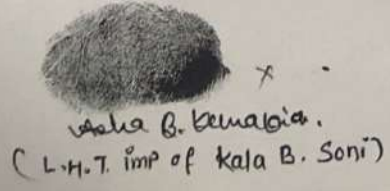 x
Asha B. Kemabia.
( L.H.T. imp of Kala B. Soni )